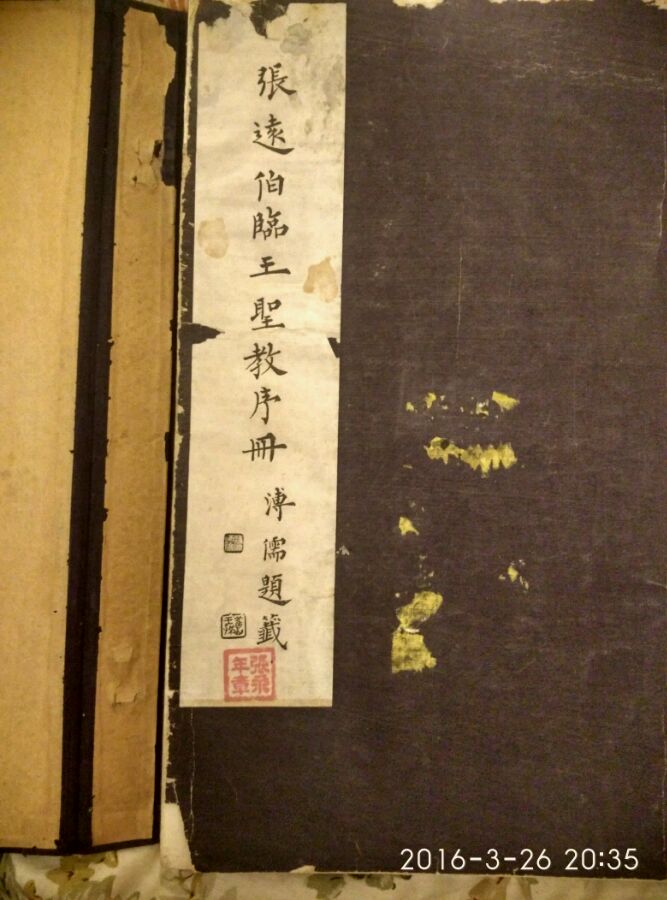 張遠伯臨王聖教序冊
溥儒題籤
張飛年章
2016-3-26 20:35